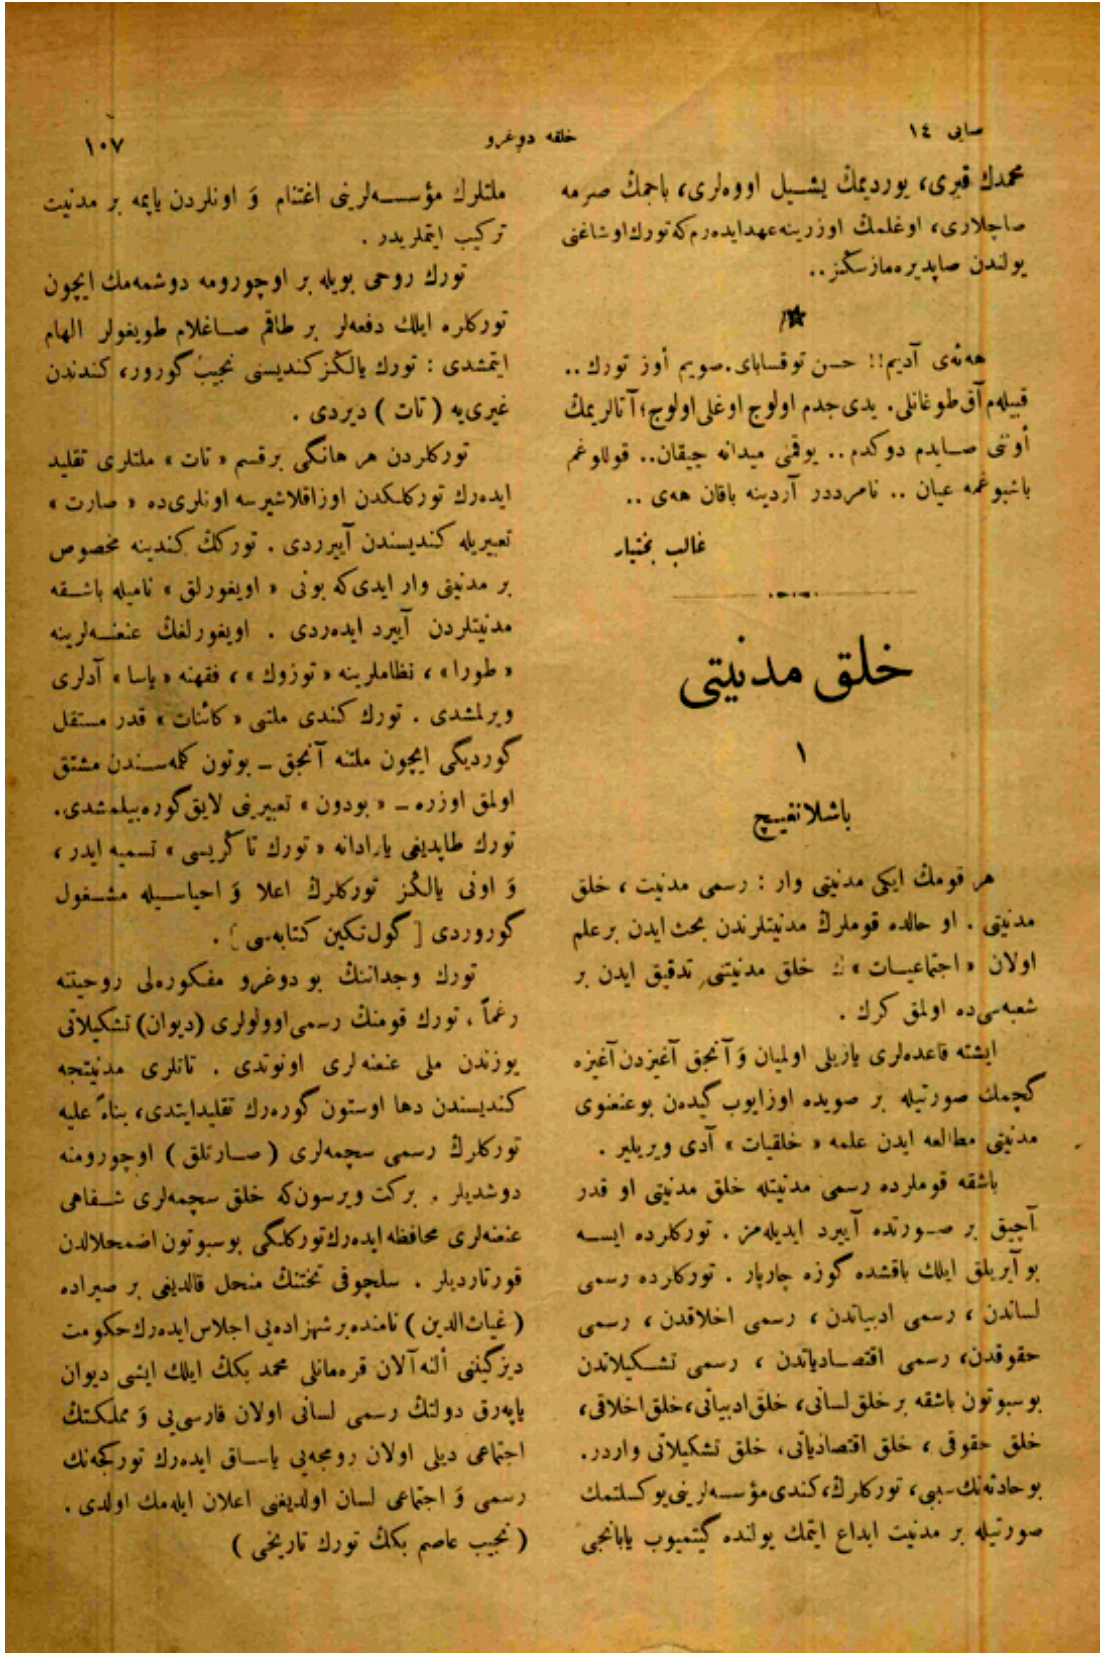 صایی ١٤
خلقه دوغرو
١٠٧
محمدك قبری، یوردیمڭ یشیل اووه‌لری، باجمڭ صرمه
صاچلاری، اوغلمڭ اوزرینه عهد ایده‌رم كه تورك اوشاغنی
یولندن صاپدیره‌مازسڭز..
هه‌ئه‌ی آدیم!! حسن توقسابای. صویم أوز تورك ..
قبیله‌م آق طوغانلی. یدی جدم اولوج اوغلی اولوج؛ آتالریمڭ
أوننی صـایدم دوكدم .. یوقمی میدانه چیقان.. قوللوغم
باشبوغمه عیان .. نامرددر آردینه باقان هه‌ی ..
غالب بختیار
خلق مدنیتی
١
باشلانغیچ
هر قومڭ ایكی مدنیتی وار : رسمی مدنیت ، خلق
مدنیتی . او حالده قوملرڭ مدنیتلرندن بحث ایدن بر علم
اولان « اجتماعیـات » ڭ خلق مدنیتنی تدقیق ایدن بر
شعبه‌سی ده اولمق كرك .
ایشته قاعده‌لری یازیلی اولمیان وَ آنجق آغیزدن آغیزه
كچمك صورتیله بر صویده اوزایوب گیده‌ن بو عنعنوی
مدنیتی مطالعه ایدن علمه « خلقیات » آدی ویریلیر .
باشقه قوملرده رسمی مدنیتله خلق مدنیتی او قدر
آچیق بر صـورتده آییرد ایدیله‌مز . توركلرده ایسـه
بو آیریلق ایلك باقشده گوزه چارپار . توركلرده رسمی
لساندن ، رسمی ادبیاتدن ، رسمی اخلاقدن ، رسمی
حقوقدن، رسمی اقتصـادیاتدن ، رسمی تشـكیلاتدن
بوسبوتون باشقه بر خلق لسانی، خلق ادبیاتی، خلق اخلاقی،
خلق حقوقی ، خلق اقتصادیاتی، خلق تشكیلاتی واردر.
بو حادثه‌نك سببی، توركلرڭ، كندی مؤسسه‌لرینی یوكسلتمك
صورتیله بر مدنیت ابداع ایتمك یولنده گیتمیوب یابانجی
ملتلرك مؤسسـه‌لرینی اغتنام وَ اونلردن یاپمه بر مدنیت
تركیب ایتملریدر .
تورك روحی بویله بر اوچورومه دوشمه‌مك ایچون
توركلره ایلك دفعه‌لر بر طاقم صـاغلام طویغولر الهام
ایتمشدی : تورك یالڭز كندیسنی نجیب گورور، كندندن
غیری‌یه ( تات ) دیردی .
توركلردن هر هانگی بر قسم « تات » ملتلری تقلید
ایده‌رك توركلكدن اوزاقلاشیرسه اونلری ده « صارت »
تعبیریله كندیسندن آییرردی . توركڭ كندینه مخصوص
بر مدنیتی وار ایدی كه بونی « اویغورلق » نامیله باشـقه
مدنیتلردن آییرد ایده‌ردی . اویغورلغڭ عنعنـه‌لرینه
« طورا » ، نظاملرینه « توزوك » ، فقهنه « یاسا » آدلری
ویرلمشدی . تورك كندی ملتنی « كائنات » قدر مستقل
گوردیگی ایچون ملتنه آنجق ــ بوتون كلمه‌سـندن مشتق
اولمق اوزره ــ « بودون » تعبیرینی لایق گوره‌بیلمشدی.
تورك طاپدیغی یارادانه « تورك تاڭریسی » تسمیه ایدر ،
وَ اونی یالڭز توركلرڭ اعلا وَ احیاسـیله مشـغول
گوروردی [ گول تكین كتابه‌سی ] .
تورك وجداننڭ بو دوغرو مفكوره‌لی روحیتنه
رغماً ، تورك قومنڭ رسمی اوولولری (دیوان) تشكیلاتی
یوزندن ملی عنعنه‌لری اونوتدی . تاتلری مدنیتجه
كندیسندن دها اوستون گوره‌رك تقلید ایتدی، بناءً علیه
توركلرڭ رسمی سچمه‌لری ( صـارتلق ) اوچورومنه
دوشدیلر . بركت ویرسون كه خلق سچمه‌لری شـفاهی
عنعنه‌لری محافظه ایده‌رك توركلگی بوسبوتون اضمحلالدن
قورتاردیلر . سلچوقی تختنڭ منحل قالدیغی بر صیراده
( غیاث‌الدین ) نامنده بر شهزاده‌یی اجلاس ایده‌رك حكومت
دیزگیننی ألنه آلان قره‌مانلی محمد بكڭ ایلك ایشی دیوان
یاپه‌رق دولتڭ رسمی لسانی اولان فارسی‌یی وَ مملكتڭ
اجتماعی دیلی اولان رومجه‌یی یاسـاق ایده‌رك توركجه‌نك
رسمی وَ اجتماعی لسان اولدیغنی اعلان ایله‌مك اولدی .
( نجیب عاصم بكڭ تورك تاریخی )